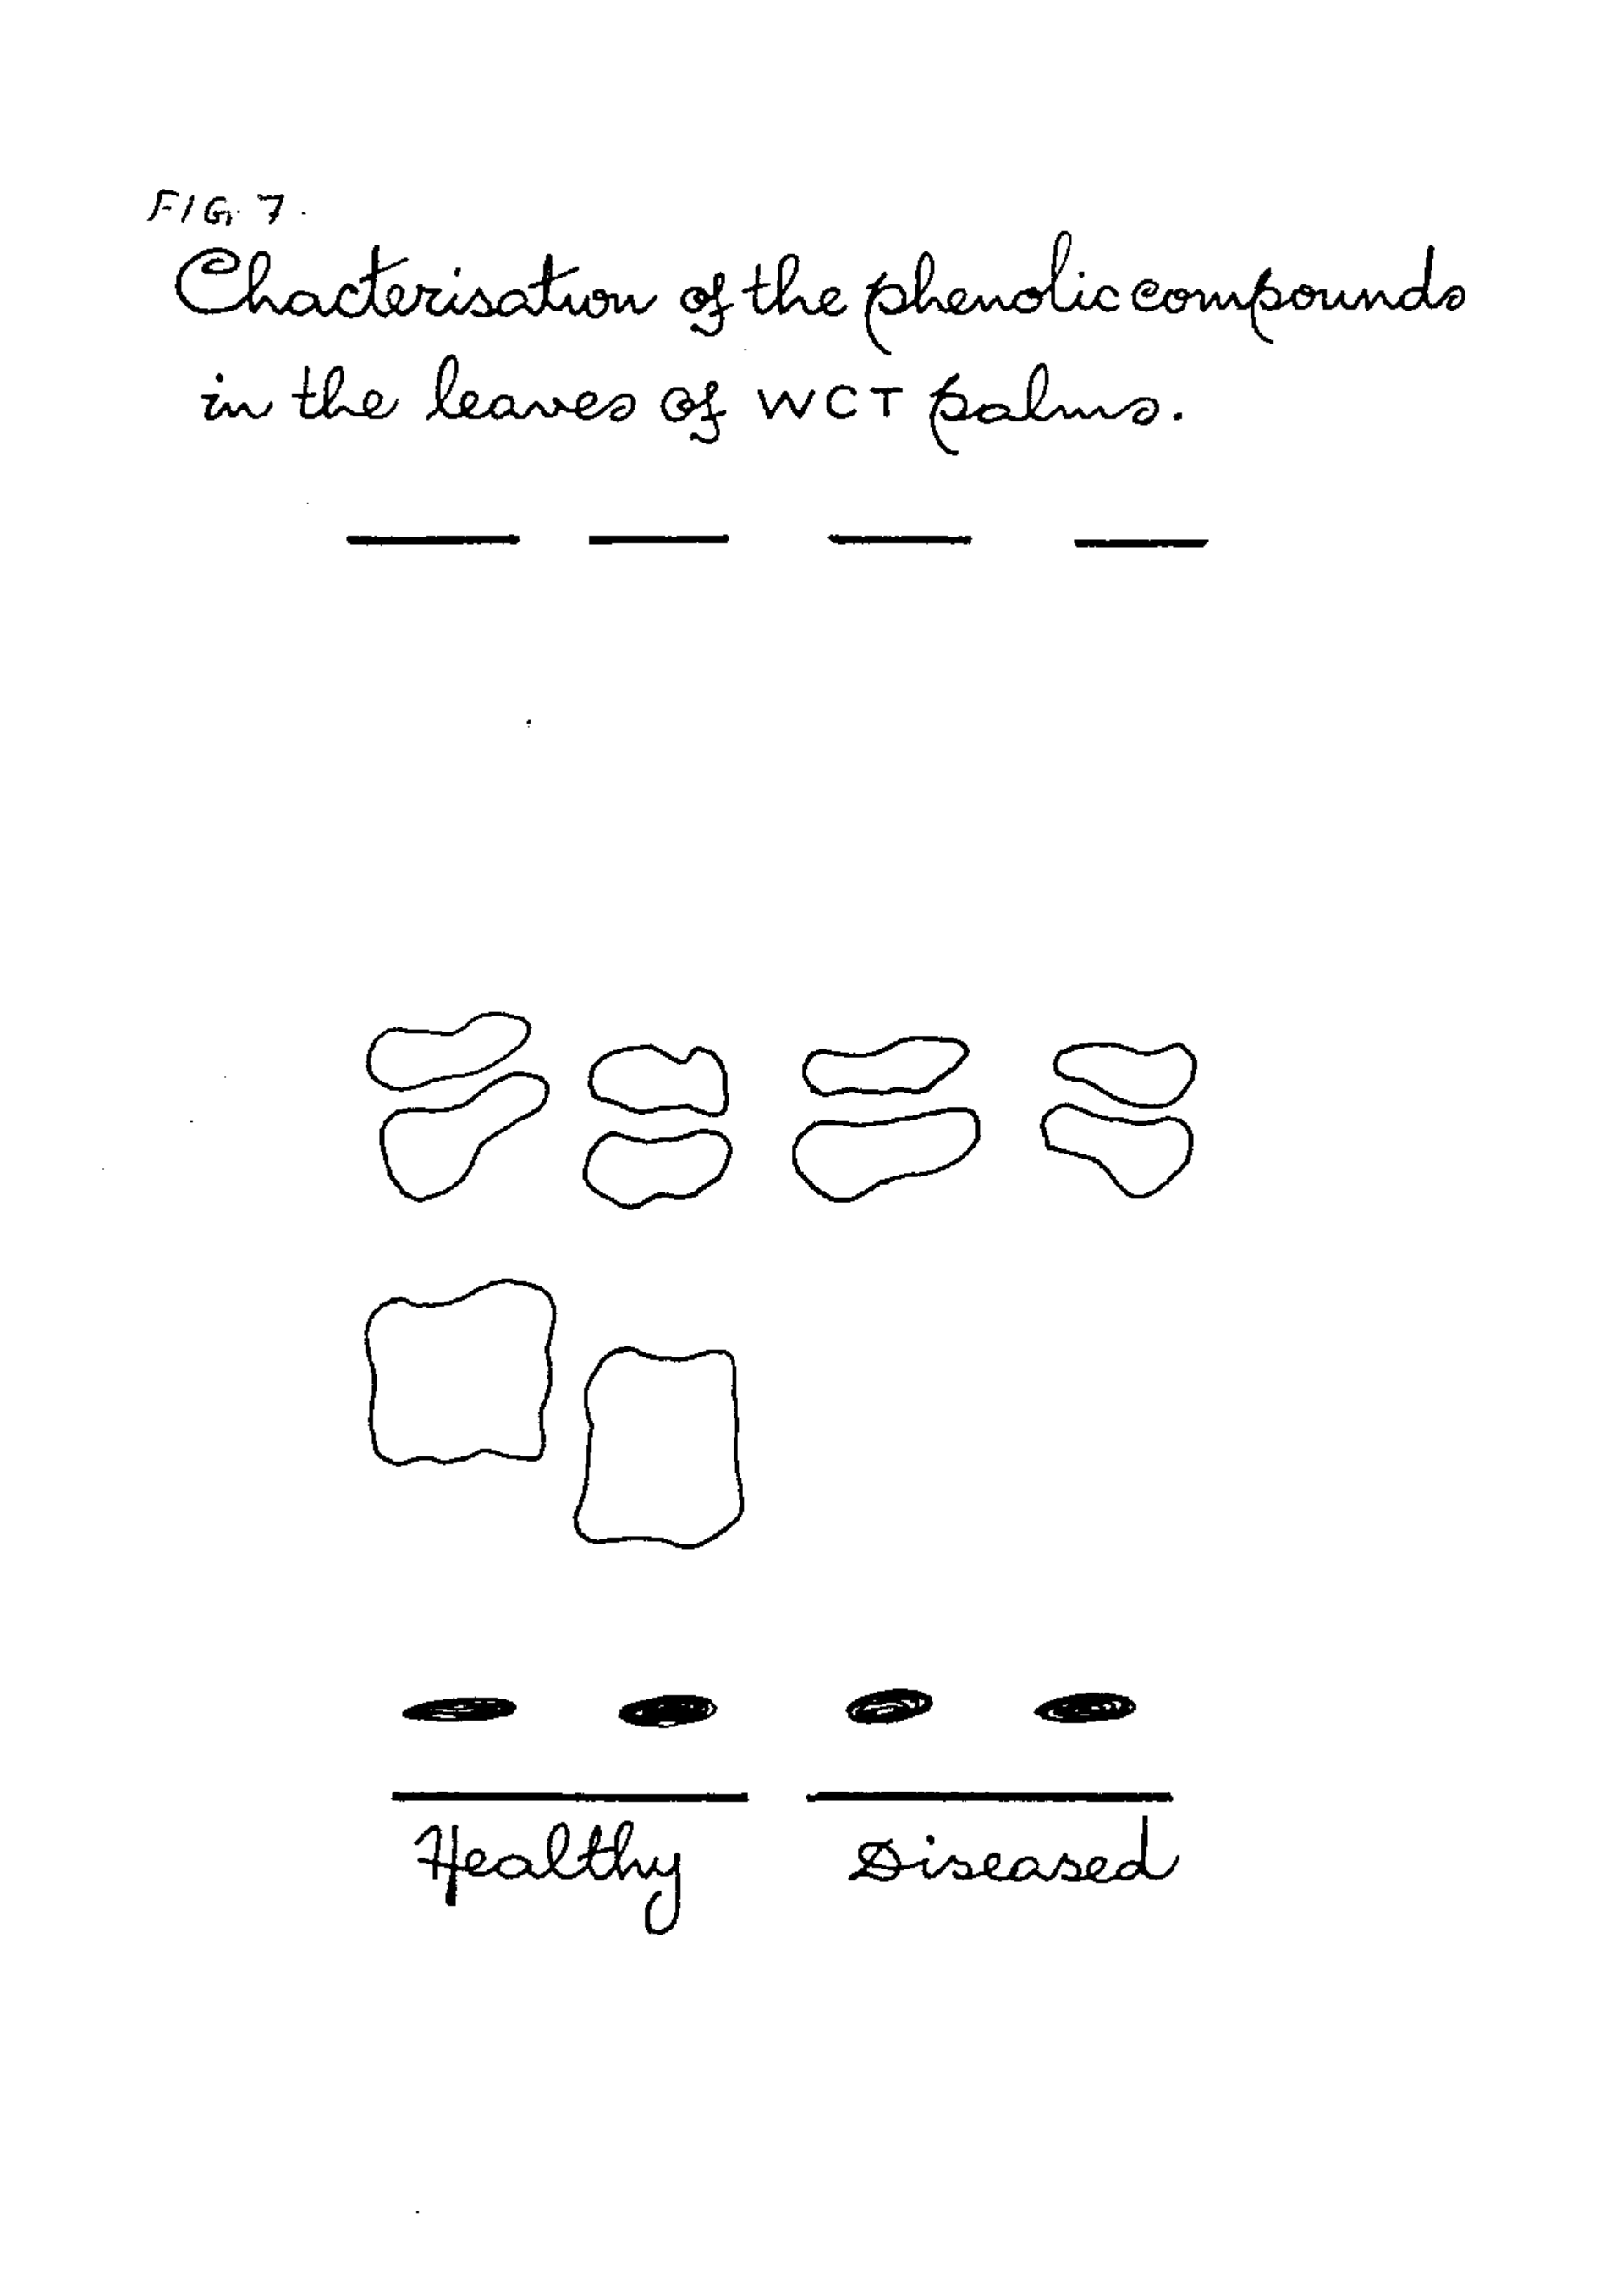 FIG. 7.
Chacterisation of the phenolic compounds
in the leaves of WCT palms.
Healthy Diseased